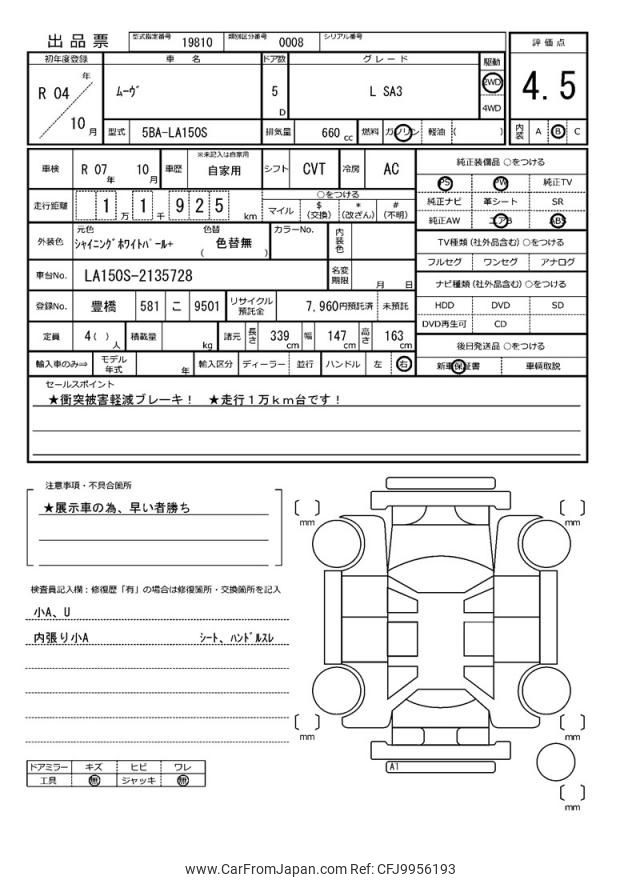 出品票 型式指定番号 19810 類別区分番号 0008 シリアル番号
初年度登録 車名 ドア数 グレード 駆動 評価点
R 04 年 10 月 ムーヴ 5 D L SA3 2WD 4WD 4.5
型式 5BA-LA150S 排気量 660 cc 燃料 ガソリン 軽油 ( ) 内装 A B C
車検 R 07 年 10 月 車歴 ※未記入は自家用 自家用 シフト CVT 冷房 AC 純正装備品 ○をつける
PS PW 純正TV
走行距離 1 万 1 千 9 2 5 km ○をつける
マイル $ (交換) * (改ざん) # (不明)
純正ナビ 革シート SR
純正AW エアB ABS
外装色 元色 シャイニングホワイトパール+ 色替 ( 色替無 ) カラーNo. 内装色
TV種類 (社外品含む) ○をつける
フルセグ ワンセグ アナログ
車台No. LA150S-2135728 名変期限 月 日
ナビ種類 (社外品含む) ○をつける
登録No. 豊橋 581 こ 9501 リサイクル預託金 7,960円預託済 未預託
HDD DVD SD
DVD再生可 CD
定員 4 ( ) 人 積載量 kg 諸元 長さ 339 cm 幅 147 cm 高さ 163 cm
後日発送品 ○をつける
輸入車のみ⇒ モデル年式 年 輸入区分 ディーラー 並行 ハンドル 左 右 新車保証書 車輌取説
セールスポイント
★衝突被害軽減ブレーキ! ★走行1万km台です!
注意事項・不具合箇所
★展示車の為、早い者勝ち
検査員記入欄:修復歴「有」の場合は修復箇所・交換箇所を記入
小A、U
内張り小A シート、ハンドルスレ
mm
mm
mm
mm
mm
A1
ドアミラー キズ ヒビ ワレ
工具 無 ジャッキ 無
www.CarFromJapan.com Ref: CFJ9956193